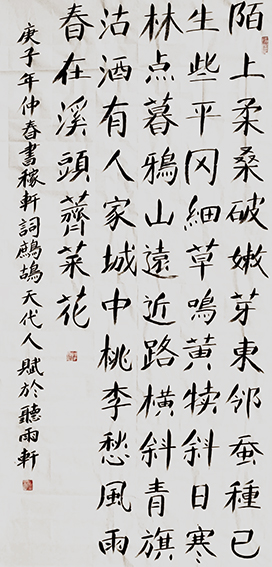 陌上柔桑破嫩芽東邻蚕種已
生些平冈細草鳴黄犊斜日寒
林点暮鴉山遠近路横斜青旗
沽酒有人家城中桃李愁風雨
春在溪頭薺菜花
庚子年仲春書稼軒詞鷓鴣天代人賦於聽雨軒